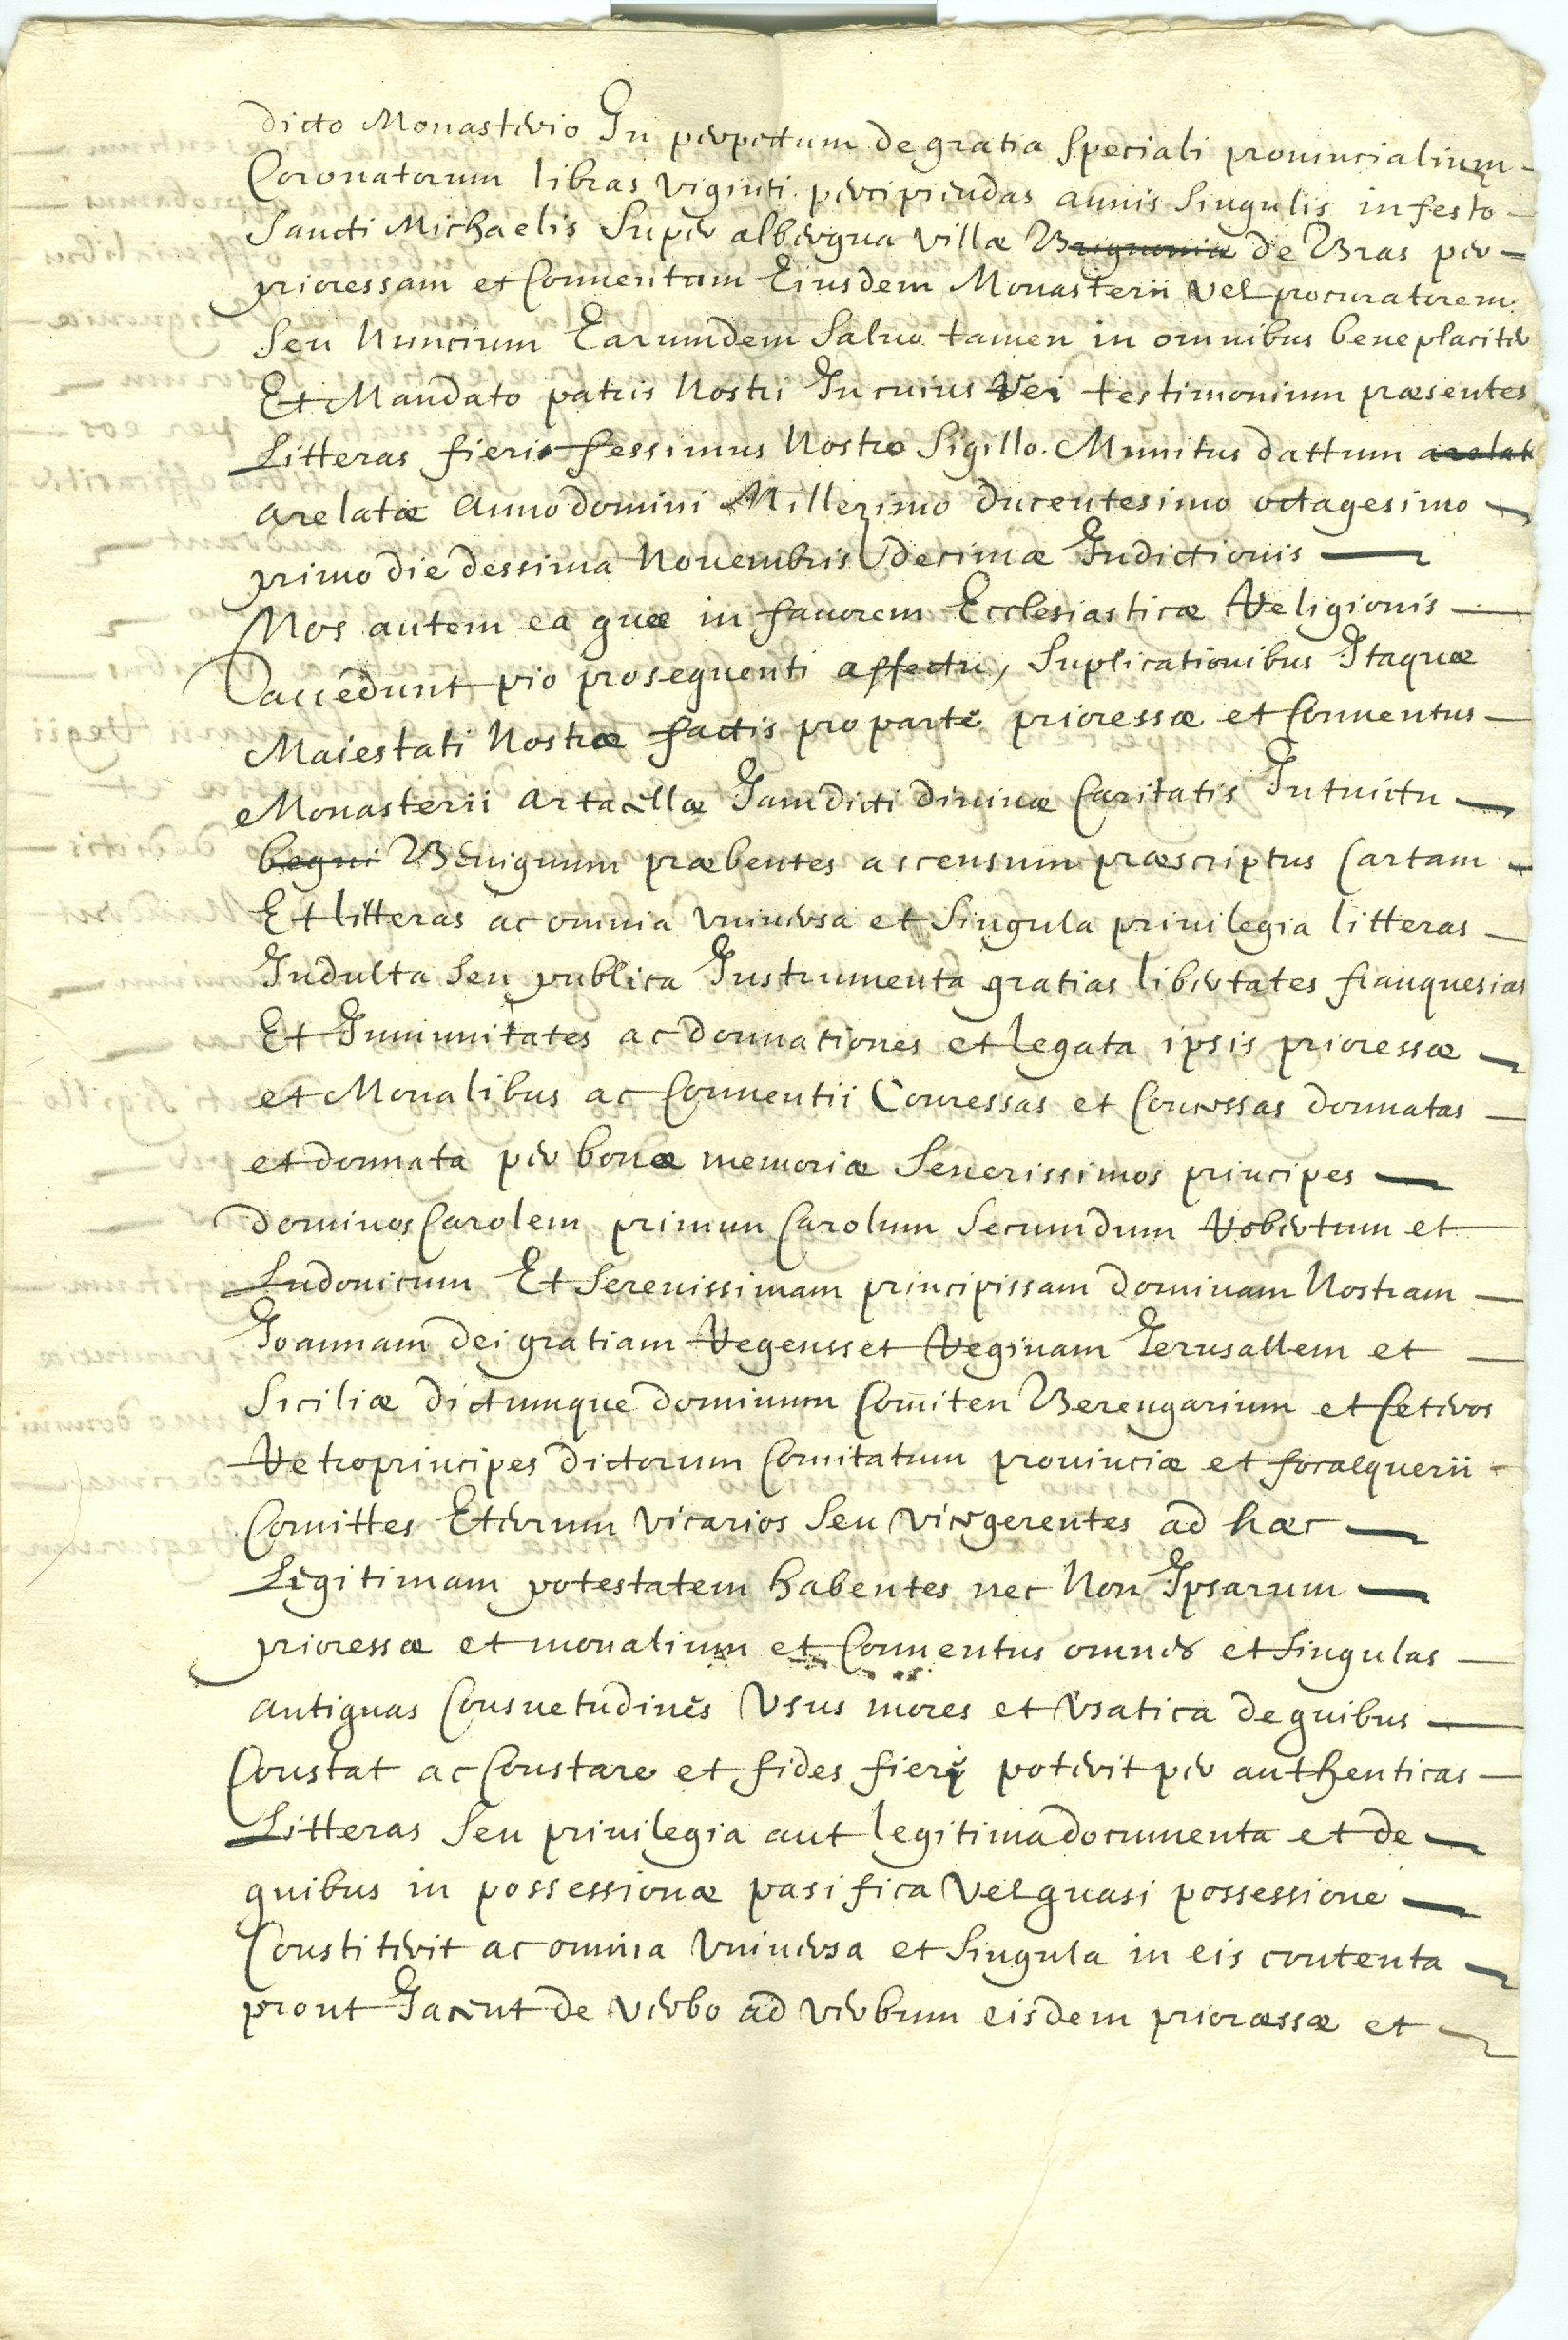 dicto Monasterio In perpetum de gratia speciali prouincialium
Coronatorum libras viginti percipiendas annis singulis in festo
Sancti Michaelis super albergua villæ Brignoniæ de Bras per
prioressam et Conuentum Eiusdem Monasterii vel procuratorem
seu Nuncium Earumdem saluo tamen in omnibus beneplacite
Et Mandato patris Nostri In cuius Rei testimonium præsentes
Litteras fieri fessimus Nostro sigillo. Munitus dattum arelat
arelatæ Anno domini Millezimo ducentesimo octagesimo
primo die dessima Nouembris decimæ Indictionis
Nos autem ea quæ in fauorem Ecclesiasticæ Religionis
accedunt pio prosequenti affectu, suplicationibus Itaquæ
Maiestati Nostræ factis pro parte prioressæ et Conuentus
Monasterii artacellæ Jam dicti diuinæ Caritatis Intuictu
begni Benignum præbentes ascensum præscriptus Cartam
Et litteras ac omnia vniuersa et singula priuilegia litteras
Indulta seu publica Instrumenta gratias libertates franquesias
Et Immunitates ac donnationes et legata ipsis prioressæ
et Monalibus ac Conuentii Conressas et Concessas donnatas
et donnata per bonæ memoriæ Senerissimos principes
Dominos Carolem primum Carolum Secumdum Robertum et
Ludouicum Et Serenissimam principissam dominam Nostram
Joannam dei gratiam Regensset Reginam Jerusallem et
Siciliæ dictumque dominum Comiten Berengarium et Ceteros
Retroprincipes dictorum Comitatum prouinciæ et forcalquerii
Comittes Eterum vicarios seu vicegerentes ad hæc
Legitimam potestatem habentes nec Non Ipsarum
prioressæ et monalium et Conuentus omnes et singulas
antiquas Consuetudines Vsus mores et Vsatica de quibus
Constat ac Constare et fides fieri poterit per authenticas
Litteras seu priuilegia aut legitima documenta et de
quibus in possessionæ pasifica vel quasi possessione
Constiterit ac omnia vniuersa et singula in eis contenta
prout Jacent de verbo ad verbum eisdem prioræssæ et